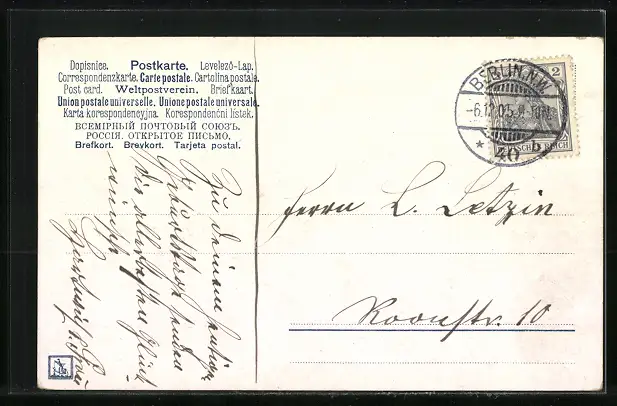 Dopisnice. Postkarte. Levelező-Lap.
Correspondenzkarte. Carte postale. Cartolina postale.
Post card. Weltpostverein. Briefkaart.
Union postale universelle. Unione postale universale.
Karta korespondencyjna. Korespondenční lístek.
ВСЕМІРНЫЙ ПОЧТОВЫЙ СОЮЗЪ.
РОССІЯ. ОТКРЫТОЕ ПИСЬМО.
Brefkort. Brevkort. Tarjeta postal.
BERLIN. N.W.
-6.12.05.
* 40 b
2
REICH
Herrn L. Letzin
Roonstr. 10
Zu deinem heutigen
Geburtstage senden
dir allerbesten Glück
wünsche